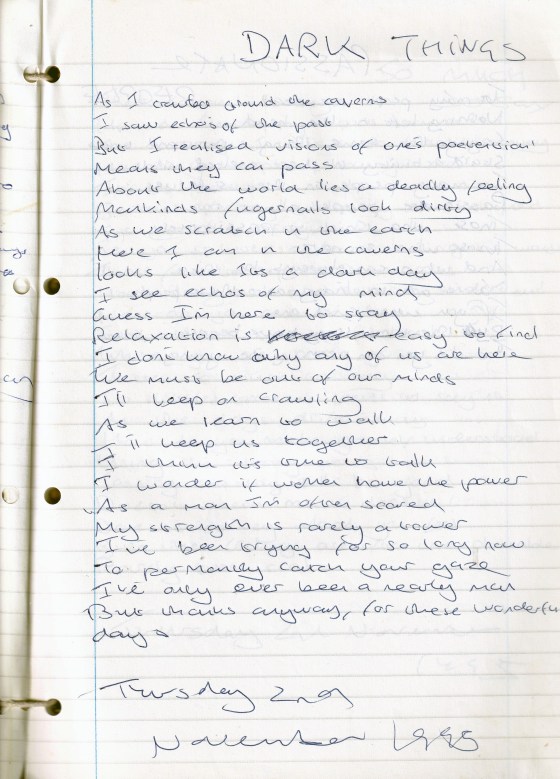 DARK THINGS
As I crawled around the caverns
I saw echos of the past
But I realised visions of one's
Means they can pass
About the world lies a deadly feeling
Mankinds fingernails look dirty
As we scratch in the earth
Here I am in the caverns
looks like Its a dark day
I see echos of my mind
Guess I'm here to stay
Relaxation is easy to find
I don't know why any of us are here
We must be out of our minds
I'll keep on crawling
As we learn to walk
I'll keep us together
I think it's time to talk
I wonder if women have the power
As a man I'm often scared
My strength is rarely a tower
I've been trying for so long now
To permanently catch your gaze
I've only ever been a nearly man
But thanks anyway, for these wonderful
days
2nd
November 1995